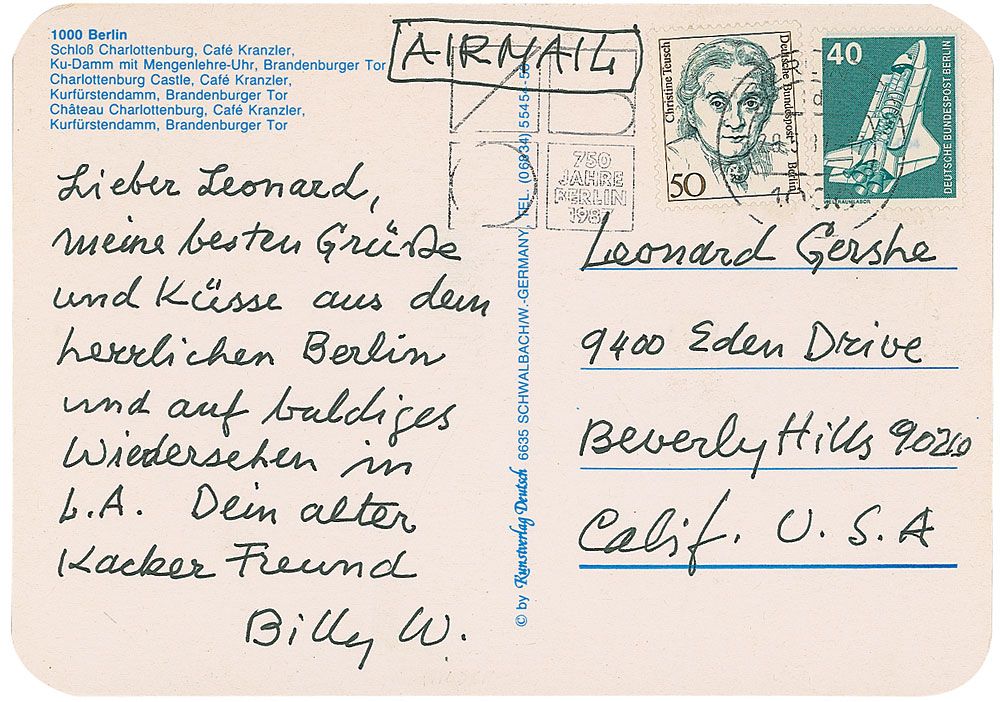 1000 Berlin
Schloß Charlottenburg, Café Kranzler,
Ku-Damm mit Mengenlehre-Uhr, Brandenburger Tor
Charlottenburg Castle, Café Kranzler,
Kurfürstendamm, Brandenburger Tor
Château Charlottenburg, Café Kranzler,
Kurfürstendamm, Brandenburger Tor
AIRMAIL
750
JAHRE
BERLIN
1987
Christine Teusch
Deutsche Bundespost Berlin
50
40
DEUTSCHE BUNDESPOST BERLIN
Lieber Leonard,
meine besten Grüße
und Küsse aus dem
herrlichen Berlin
und auf baldiges
Wiedersehen in
L.A. Dein alter
Kacker Freund
Billy W.
© by Kunstverlag Deutsch 6635 SCHWALBACH/W.-GERMANY, TEL. (06834) 55454-56
Leonard Gershe
9400 Eden Drive
Beverly Hills 90210
Calif. U.S.A